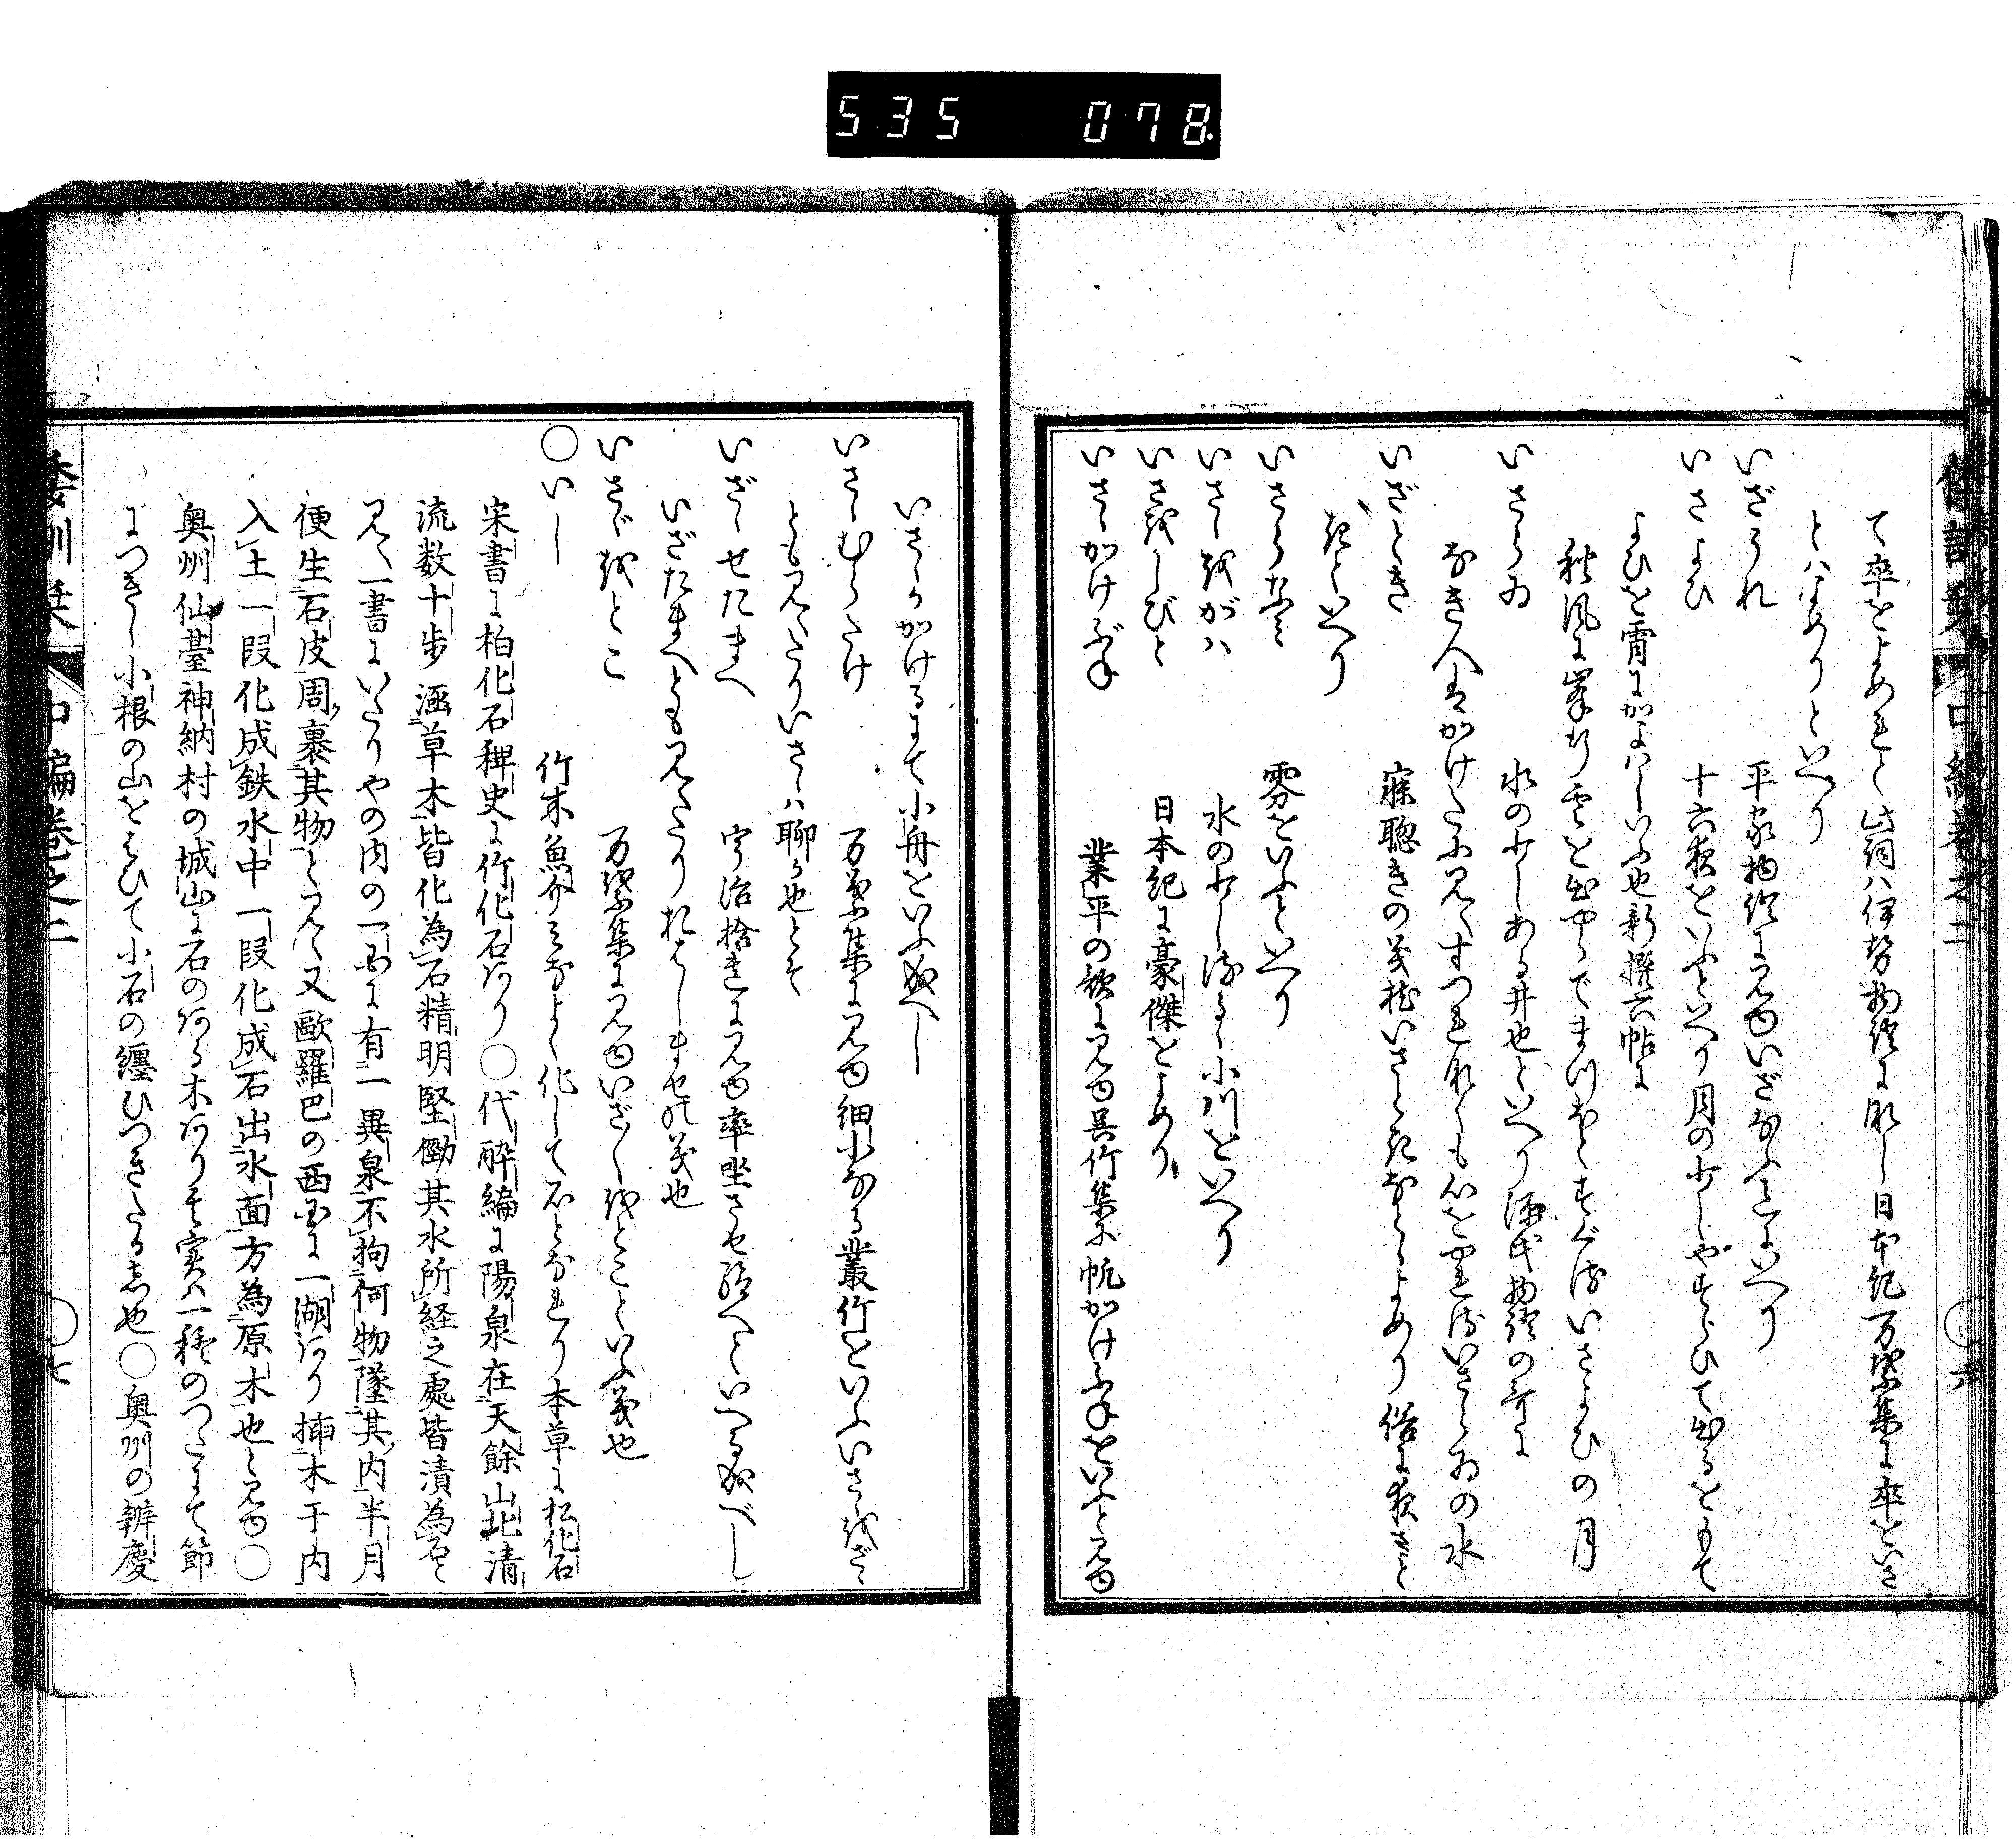 535 078
て率をよめもく此詞ハ伊勢物語に而し日本記万葉集に率をいさ
とハよめりといへり
いざうれ 平家物語に見ゆいざなふによりいへり
いさよひ 十六夜をいふといへり月の少しやすらひて出るをもて
よひを宵にかよハしいふ也新撰六帖に
秋風に峯行雲を出やらでまつほどすぐるいさよひの月
いさらゐ 水の少しある井也といへり源氏物語の哥に
なき人はかけたに見えすつれなくも心をやれるいさらゐの水
いざとき 寐聡きの義枕いさときなとよめり俗に夜さと
きといへり
いさらなミ 雰をいふといへり
いさゝをがハ 水の少し流るゝ小川をいへり
いさをしびと 日本記に豪傑をよめり
いさゝかけぶね 業平の歌に見ゆ呉竹集に帆かけふねをいふと見ゆ
いさゝかかけるにて小舟をいふ成へし
いさゝむらたけ 万葉集に見ゆ細小なる叢竹をいふいさゝをざゝ
とも見えたりいさゝハ聊か也とそ
いざゝせたまへ 宇治拾遺に見ゆ率坐させ給へといへる成べし
いざたまへとも見えたりおはしませの義也
いさゞをとこ 万葉集に見ゆいざゝをとこといふ義也
〇いし 竹木魚介ミなよく化して石となれり本草に松化石
宋書に柏化石稗史に竹化石あり〇代酔編に陽泉在天餘山北清
流数十歩涵草木皆化為石精明堅働其水所経之處皆漬為石と
見え一書にいたりやの内の一国に有一異泉不拘何物墜其内半月
便生石皮周裹其物と見え又歐羅巴の西国に一湖あり插木于内
入土一段化成鉄水中一段化成石出水面方為原木也と見ゆ〇
奥州仙臺神納村の城山に石のある木ありそ実ハ一種のつたにて節
につきし小根の山をはひて小石の纏ひつきたる志也〇奥州の辨慶
倭訓栞 中編巻之二 〇七